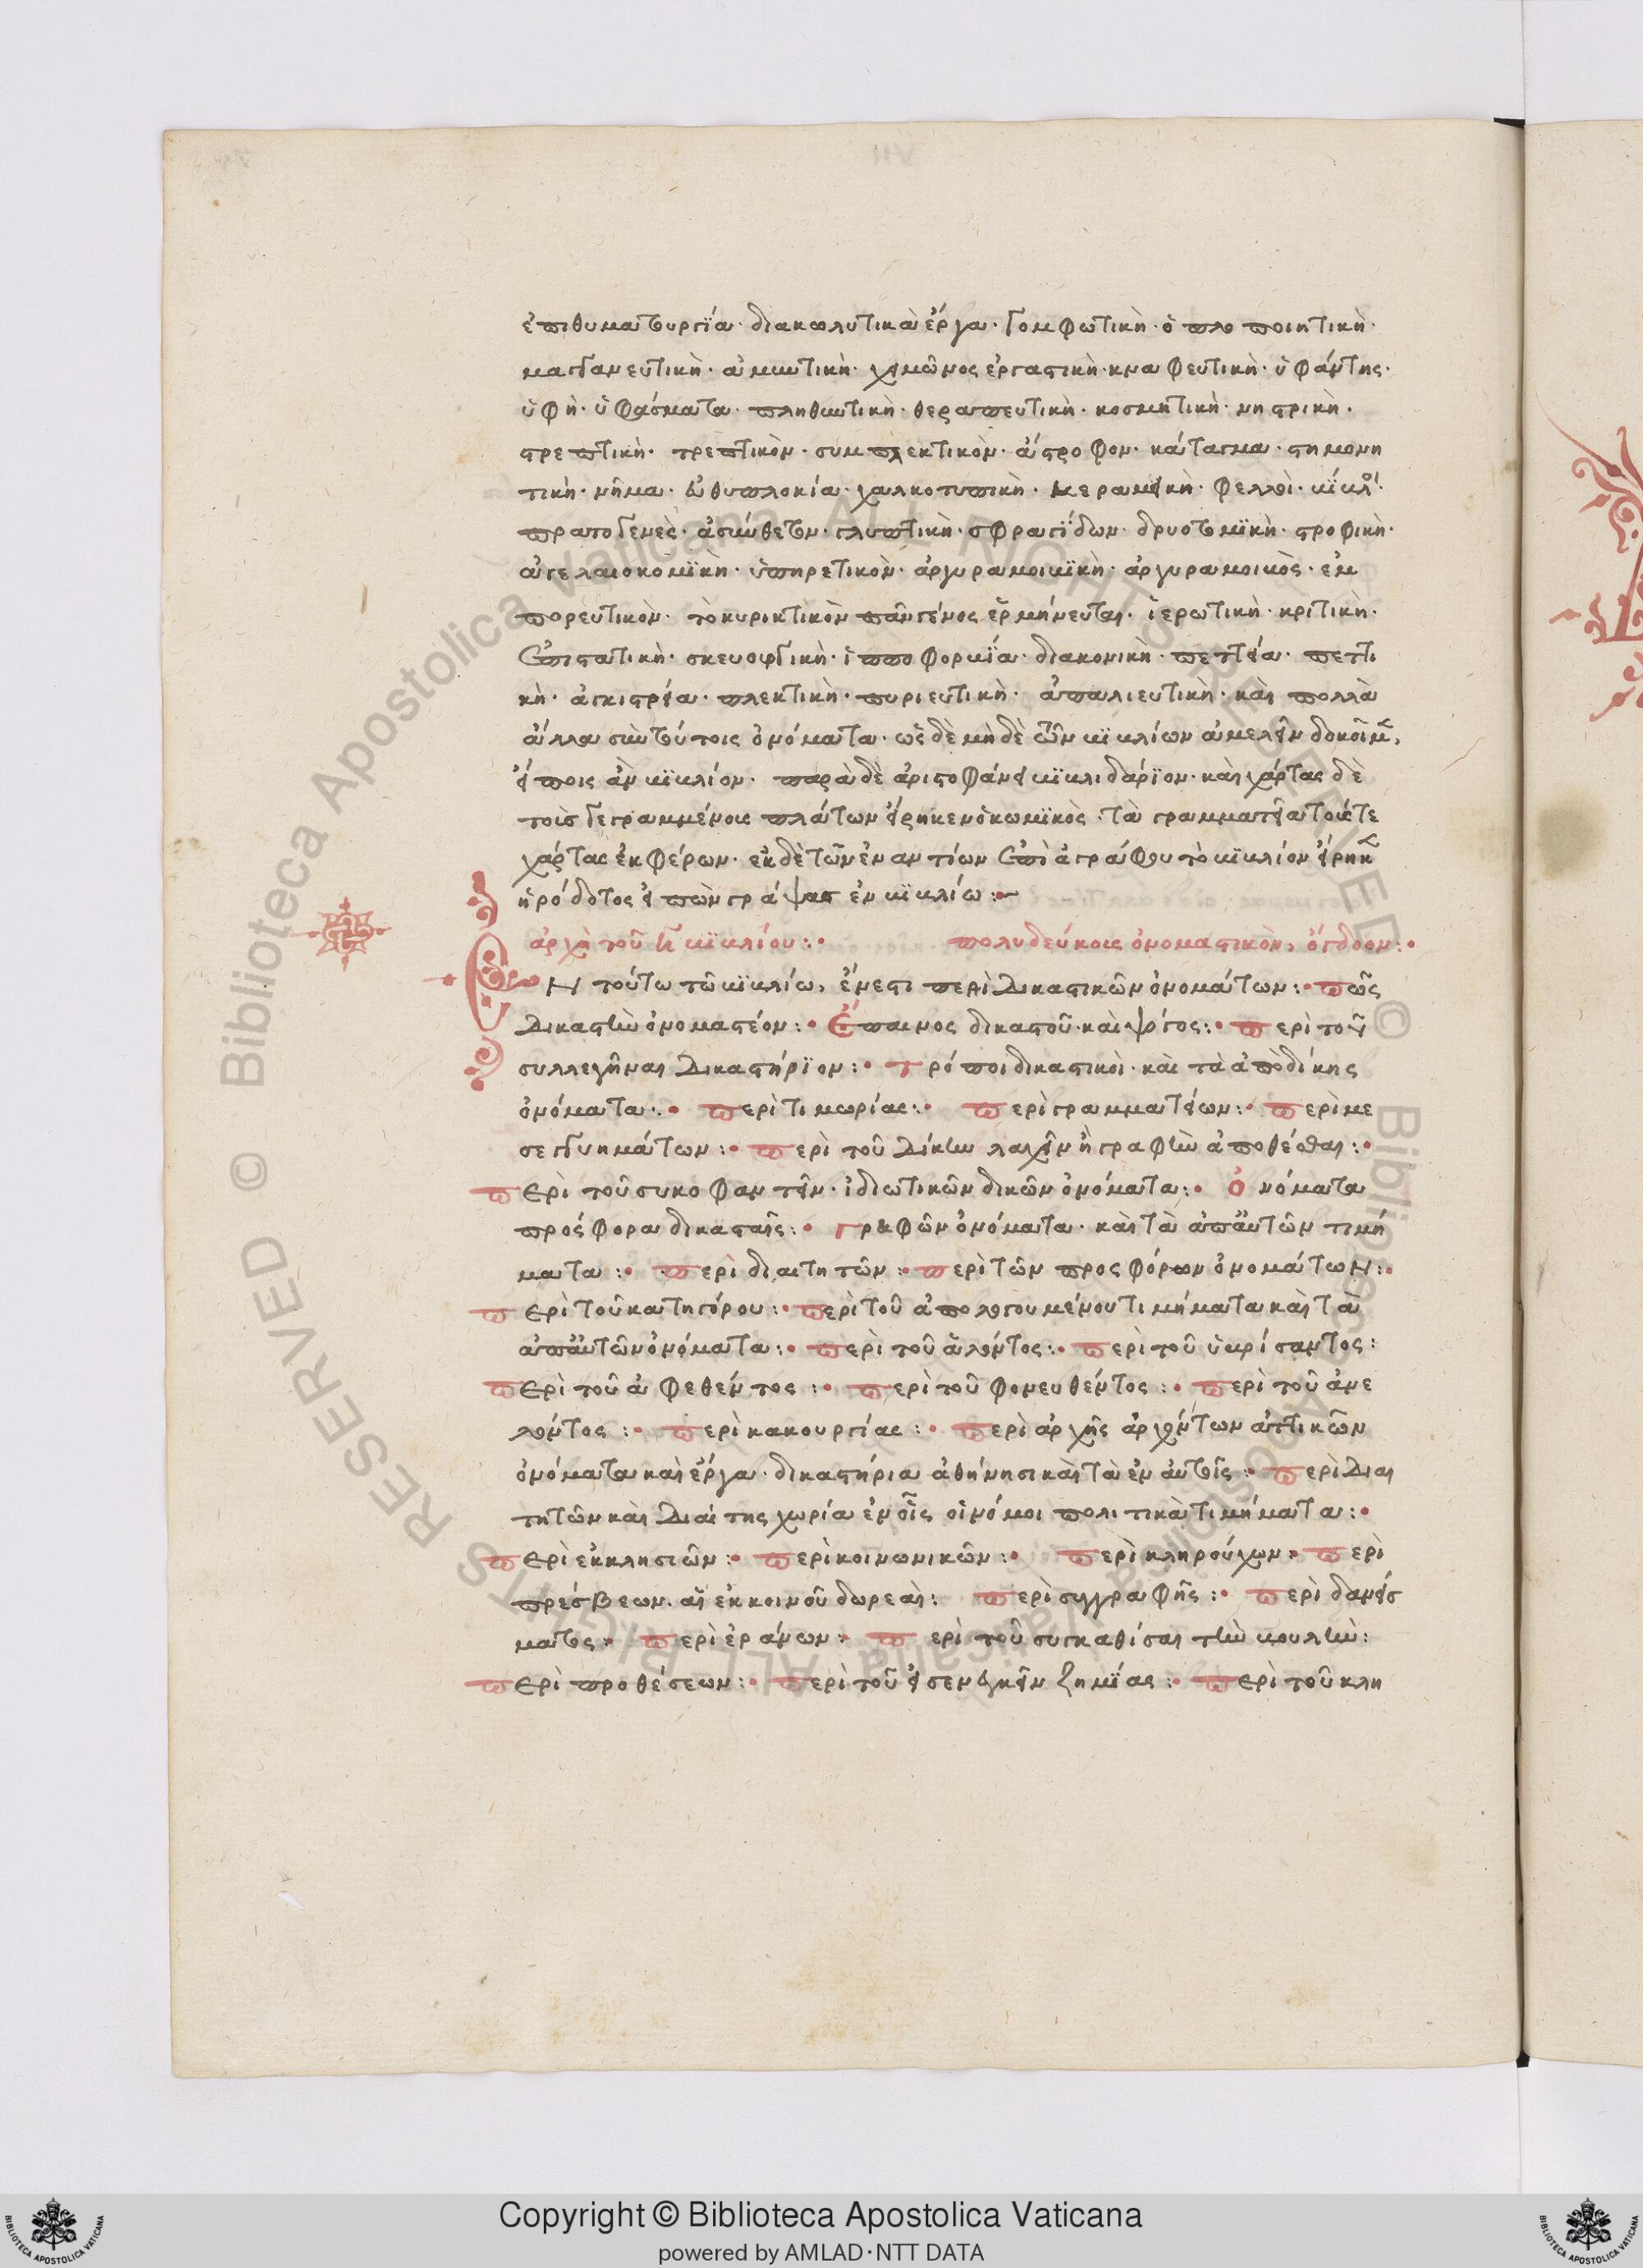 ἐπιθυματουργΐα· διακωλυτικὰ ἔργα· γομφωτικὴ· ὁπλοποιητικὴ·
μαγγανευτικὴ· ἀμυντικὴ· χειμῶνος ἐργαστικὴ· κναφευτικὴ· ὑφάντης·
ὑφὴ· ὑφάσματα· πληθυντικὴ· θεραπευτικὴ· κοσμητικὴ· νηστρικὴ·
στρεπτικὴ· τρεπτικὸν· συμπλεκτικὸν· ἄστροφον· κάταγμα· στημονη
τικὴ· νῆμα· εὐθυπλοκία· χαλκοτυπικὴ· κεραμεικὴ· φελλοὶ·
πρατογενὲς· ἀσύνθετον· γλυπτικὴ· σφραγΐδων· δρυοτομϊκὴ· στροφικὴ·
ἀγελαιοκομϊκὴ· ὑπηρετικὸν· ἀργυραμοιβϊκὴ· ἀργυραμοιβὸς· ἐμ
πορευτικὸν· τὸ κηρυκτικὸν πᾶν γένος ἑρμήνευται· ἱερωτικὴ· κριτικὴ·
ἐπιστατικὴ· ἱπποφορβΐα· διακονικὴ· πεττεία· πεττι
κὴ· ἀγκιστρεία· πλεκτικὴ· πυριευτικὴ· ἀσπαλιευτικὴ· καὶ πολλὰ
ἄλλα σὺν τούτοις ὀνόματα· ὡς δὲ μὴ δὲ τῶν βϊβλίων ἀμελεῖν δοκοῖμεν,
εἴποις ἂν βϊβλίον· παρὰ δὲ ἀριστοφάνει βϊβλιδάρϊον· καὶ χάρτας δὲ
τοὺς γεγραμμένους πλάτων εἴρηκεν ὁ κωμϊκὸς· τὰ γραμματεῖα τούς τε
χάρτας ἐκφέρων· ἐκ δὲ τῶν ἐναντίων ἐπὶ ἀγράφου τὸ βϊβλίον εἴρηκεν
ἡρόδοτος εἰπὼν γράψας ἐν βϊβλίω :~
ἀρχὴ τοῦ η βϊβλίου :· πολυδεύκους ὀνομαστικὸν, ὄγδοον :·
Εν τούτω τῶ βϊβλίω, ἔνεστι περὶ Δικαστικῶν ὀνομάτων :· πῶς
Δικαστὴν ὀνομαστέον :· Ἔπαινος δικαστοῦ· καὶ ψόγος :· περὶ τοῦ
συλλεγῆναι Δικαστήρϊον :· Τρόποι δικαστικοὶ· καὶ τὰ ἀπὸ δίκης
ὀνόματα :· περὶ τιμωρίας :· περὶ γραμματείων :· περὶ με
σεγγυημάτων :· περὶ τοῦ Δίκην λαχεῖν ἢ γραφὴν ἀποθέσθαι :·
περὶ τοῦ συκοφαντεῖν· ἰδιωτικῶν δικῶν ὀνόματα :· ὀνόματα
πρόσφορα δικασταῖς :· Γραφῶν ὀνόματα· καὶ τὰ ἀπ' αὐτῶν τιμή
ματα :· περὶ διαιτητῶν :· περὶ τῶν προσφόρων ὀνομάτων :·
περὶ τοῦ κατηγόρου :· περὶ τοῦ ἀπολογουμένου τιμήματα καὶ τὰ
ἀπ' αὐτῶν ὀνόματα :· περὶ τοῦ ἁλόντος :· περὶ τοῦ ὑβρίσαντος :
περὶ τοῦ ἀφεθέντος :· περὶ τοῦ φονευθέντος :· περὶ τοῦ ἀνε
λόντος :· περὶ κακουργίας :· περὶ ἀρχῆς ἀρχόντων ἀττικῶν
ὀνόματα καὶ ἔργα· δικαστήρια ἀθήνησι καὶ τὰ ἐν αὐτοῖς :· περὶ Διαι
τητῶν καὶ Διαίτης χωρία ἐν οἷς οἱ νόμοι πολιτικὰ τιμήματα :·
περὶ ἐκκλησιῶν :· περὶ κοινωνικῶν :· περὶ κληρούχων :· περὶ
πρέσβεων. αἱ ἐκ κοινοῦ δωρεαὶ : περὶ συγγραφῆς :· περὶ δανείσ
ματος :· περὶ ἐράνων :· περὶ τοῦ συγκαθίσαι τὴν βουλὴν :
περὶ προθέσεων :· περὶ τοῦ εἰσενεγκεῖν ζημΐας :· περὶ τοῦ κλη
© Biblioteca Apostolica Vaticana ALL RIGHTS RESERVED
Copyright © Biblioteca Apostolica Vaticana
powered by AMLAD·NTT DATA
BIBLIOTECA APOSTOLICA VATICANA